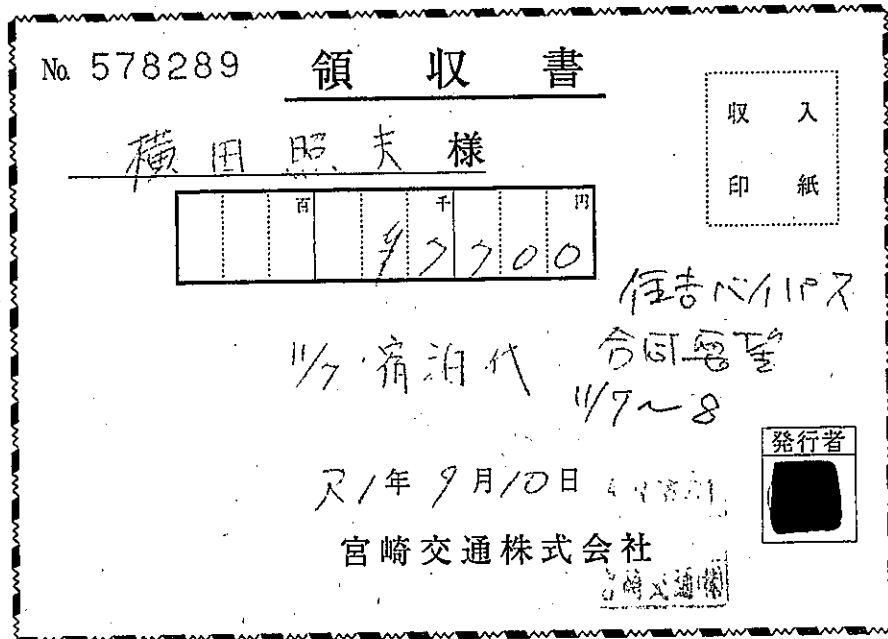 No. 578289
領収書
収入
印紙
横田照夫様
百 千 円
97700
住吉バイパス
合同要望
11/7 宿泊代
11/7〜8
発行者
R1年9月10日
宮崎交通株式会社
宮崎交通㈱